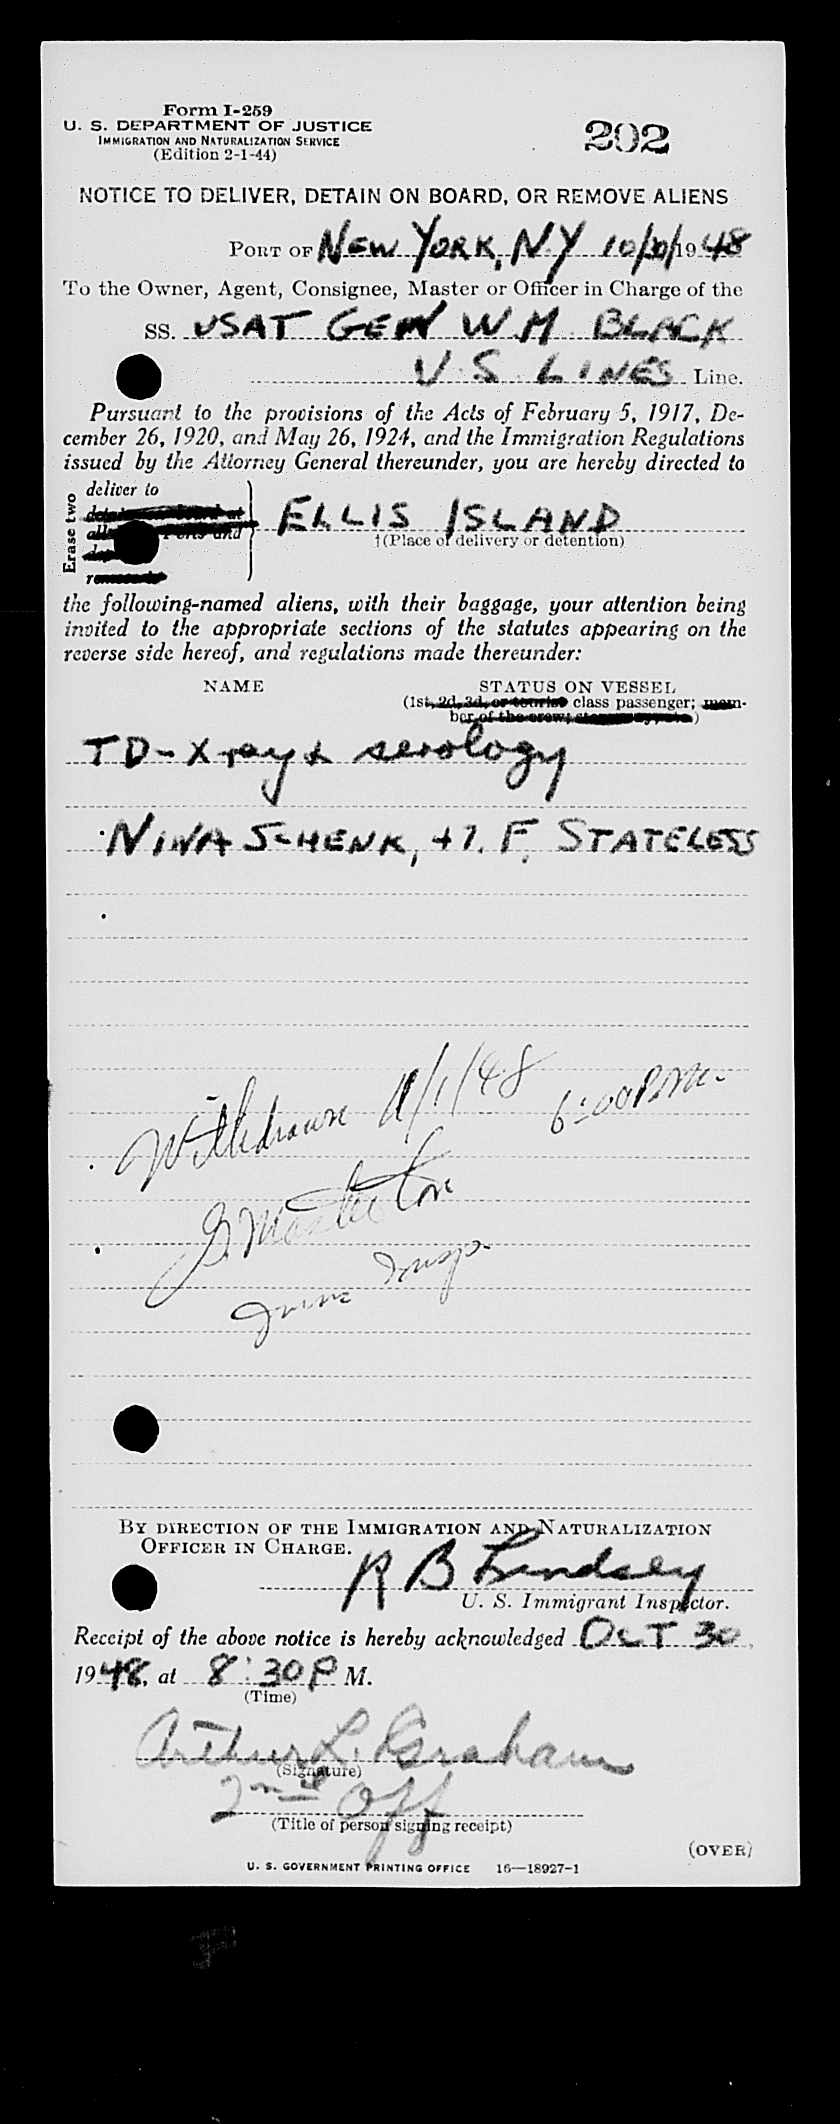 Form I-259
U. S. DEPARTMENT OF JUSTICE
IMMIGRATION AND NATURALIZATION SERVICE
(Edition 2-1-44)
202
NOTICE TO DELIVER, DETAIN ON BOARD, OR REMOVE ALIENS
PORT OF NEW YORK, NY 10/30/1948
To the Owner, Agent, Consignee, Master or Officer in Charge of the
SS. USAT GEN W.M. BLACK
U.S. LINES Line.
Pursuant to the provisions of the Acts of February 5, 1917, De-
cember 26, 1920, and May 26, 1924, and the Immigration Regulations
issued by the Attorney General thereunder, you are hereby directed to
Erase two
deliver to
ELLIS ISLAND
†(Place of delivery or detention)
the following-named aliens, with their baggage, your attention being
invited to the appropriate sections of the statutes appearing on the
reverse side hereof, and regulations made thereunder:
NAME STATUS ON VESSEL
(1st, 2d, 3d, or tourist class passenger; mem-
ber of the crew; stowaway, etc.)
TD-X-ray & serology
NINA SCHENK, 47. F. STATELESS
Withdrawn 11/1/48 6:00 P.M.
Imm Insp.
BY DIRECTION OF THE IMMIGRATION AND NATURALIZATION
OFFICER IN CHARGE.
R B Lindsey
U. S. Immigrant Inspector.
Receipt of the above notice is hereby acknowledged OCT 30,
1948, at 8:30 P M.
(Time)
Arthur L. Graham
(Signature)
2nd Off
(Title of person signing receipt)
(OVER)
U. S. GOVERNMENT PRINTING OFFICE 16—18927-1